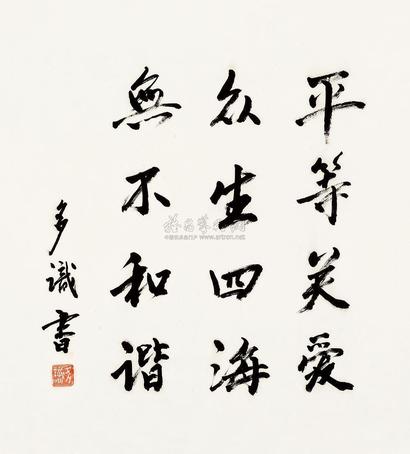 平等关爱
众生四海
無不和谐
多識書